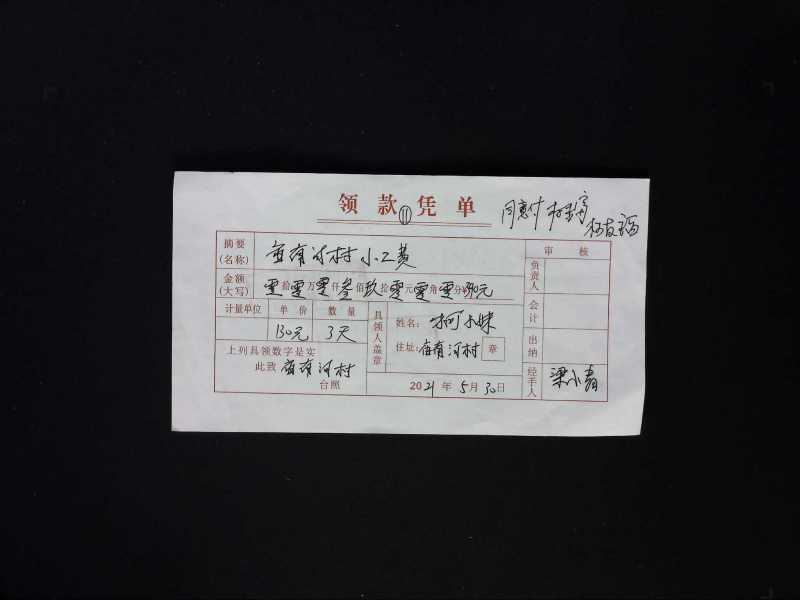 领款凭单
11
同意付
摘要
(名称)
有河村小工费
审 核
金额
(大写)
零拾零万零仟叁佰玖拾零元零角零分¥390元
负责人
计量单位 单价 数量
130元 3天
具领人盖章
姓名: 柯小妹
住址: 有河村 章
会计
出纳
上列具领数字是实
此致 有河村
台照
2021年5月30日
经手人
梁小青